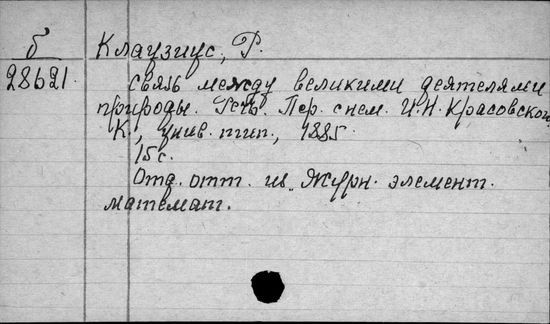 б
28621.
Клаузиус, Р.
связь между великими деятелями
природы. Речь. Пер. с нем. И.Н. Красовского
К., унив. тип., 1885.
15 с.
Отд. отт. из „Журн. элемент.
математ.